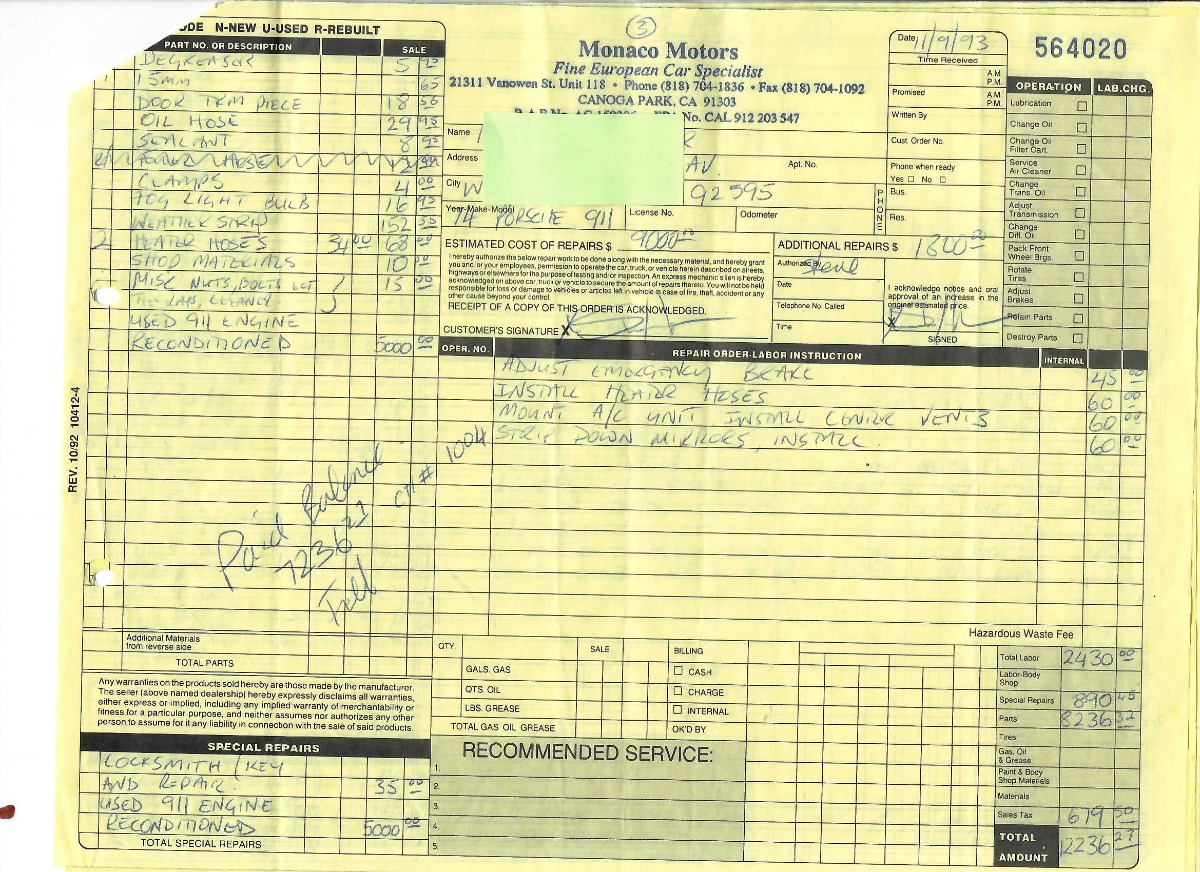 ODE N-NEW U-USED R-REBUILT
PART NO. OR DESCRIPTION SALE
DEGREASOR 5 95
15mm 65
DOOR TRM PIECE 18 56
OIL HOSE 29 95
SEALANT 8 95
HOSE
CLAMPS 4 00
FOG LIGHT BULB 16 95
WEATHER STRIP 152 55
2 HEATER HOSES 34 00 68 00
SHOP MATERIALS 10 00
MISC NUTS, BOLTS ECT 15 00
TIE RAPS,
USED 911 ENGINE
RECONDITIONED 5000 00
REV. 10/92 10412-4
Paid Balance
7236 21 CH# 1004
Additional Materials
from reverse side
TOTAL PARTS
Any warranties on the products sold hereby are those made by the manufacturer.
The seller (above named dealership) hereby expressly disclaims all warranties,
either express or implied, including any implied warranty of merchantability or
fitness for a particular purpose, and neither assumes nor authorizes any other
person to assume for it any liability in connection with the sale of said products.
SPECIAL REPAIRS
LOCKSMITH / KEY
AND REPAIR 35 00
USED 911 ENGINE
RECONDITIONED 5000 00
TOTAL SPECIAL REPAIRS
3
Monaco Motors
Fine European Car Specialist
21311 Vanowen St. Unit 118 • Phone (818) 704-1836 • Fax (818) 704-1092
CANOGA PARK, CA 91303
No. CAL 912 203 547
Name R
Address AV. Apt. No.
City W 92595
Year-Make-Model 74 PORSCHE 911 License No. Odometer
Date 11/9/93
Time Received
A.M.
P.M.
Promised A.M.
P.M.
Written By
Cust. Order No.
Phone when ready
Yes No
PHONE
Bus.
Res.
564020
OPERATION LAB.CHG.
Lubrication
Change Oil
Change Oil
Filter Cart.
Service
Air Cleaner
Change
Trans. Oil
Adjust
Transmission
Change
Diff. Oil
Pack Front
Wheel Brgs.
Rotate
Tires
Adjust
Brakes
Retain Parts
Destroy Parts
ESTIMATED COST OF REPAIRS $ 9000 00
I hereby authorize the below repair work to be done along with the necessary material, and hereby grant
you and/or your employees, permission to operate the car, truck, or vehicle herein described on streets,
highways or elsewhere for the purpose of testing and/or inspection. An express mechanic's lien is hereby
acknowledged on above car, truck or vehicle to secure the amount of repairs thereto. You will not be held
responsible for loss or damage to vehicles or articles left in vehicle in case of fire, theft, accident or any
other cause beyond your control.
RECEIPT OF A COPY OF THIS ORDER IS ACKNOWLEDGED.
CUSTOMER'S SIGNATURE X
ADDITIONAL REPAIRS $ 1800 00
Authorized By Steve
Date
Telephone No. Called
Time
I acknowledge notice and oral
approval of an increase in the
original estimated price.
X
SIGNED
OPER. NO. REPAIR ORDER-LABOR INSTRUCTION INTERNAL
ADJUST EMERGENCY BRAKE 45 00
INSTALL HEATER HOSES 60 00
MOUNT A/C UNIT INSTALL CENTER VENTS 60 00
STRIP DOWN MIRRORS, INSTALL 60 00
QTY. SALE BILLING
GALS. GAS CASH
QTS. OIL CHARGE
LBS. GREASE INTERNAL
TOTAL GAS OIL GREASE OK'D BY
RECOMMENDED SERVICE:
1.
2.
3.
4.
5.
Hazardous Waste Fee
Total Labor 2430 00
Labor-Body
Shop
Special Repairs 890 45
Parts 8236 32
Tires
Gas, Oil
& Grease
Paint & Body
Shop Materials
Materials
Sales Tax 679 50
TOTAL
AMOUNT 12236 27